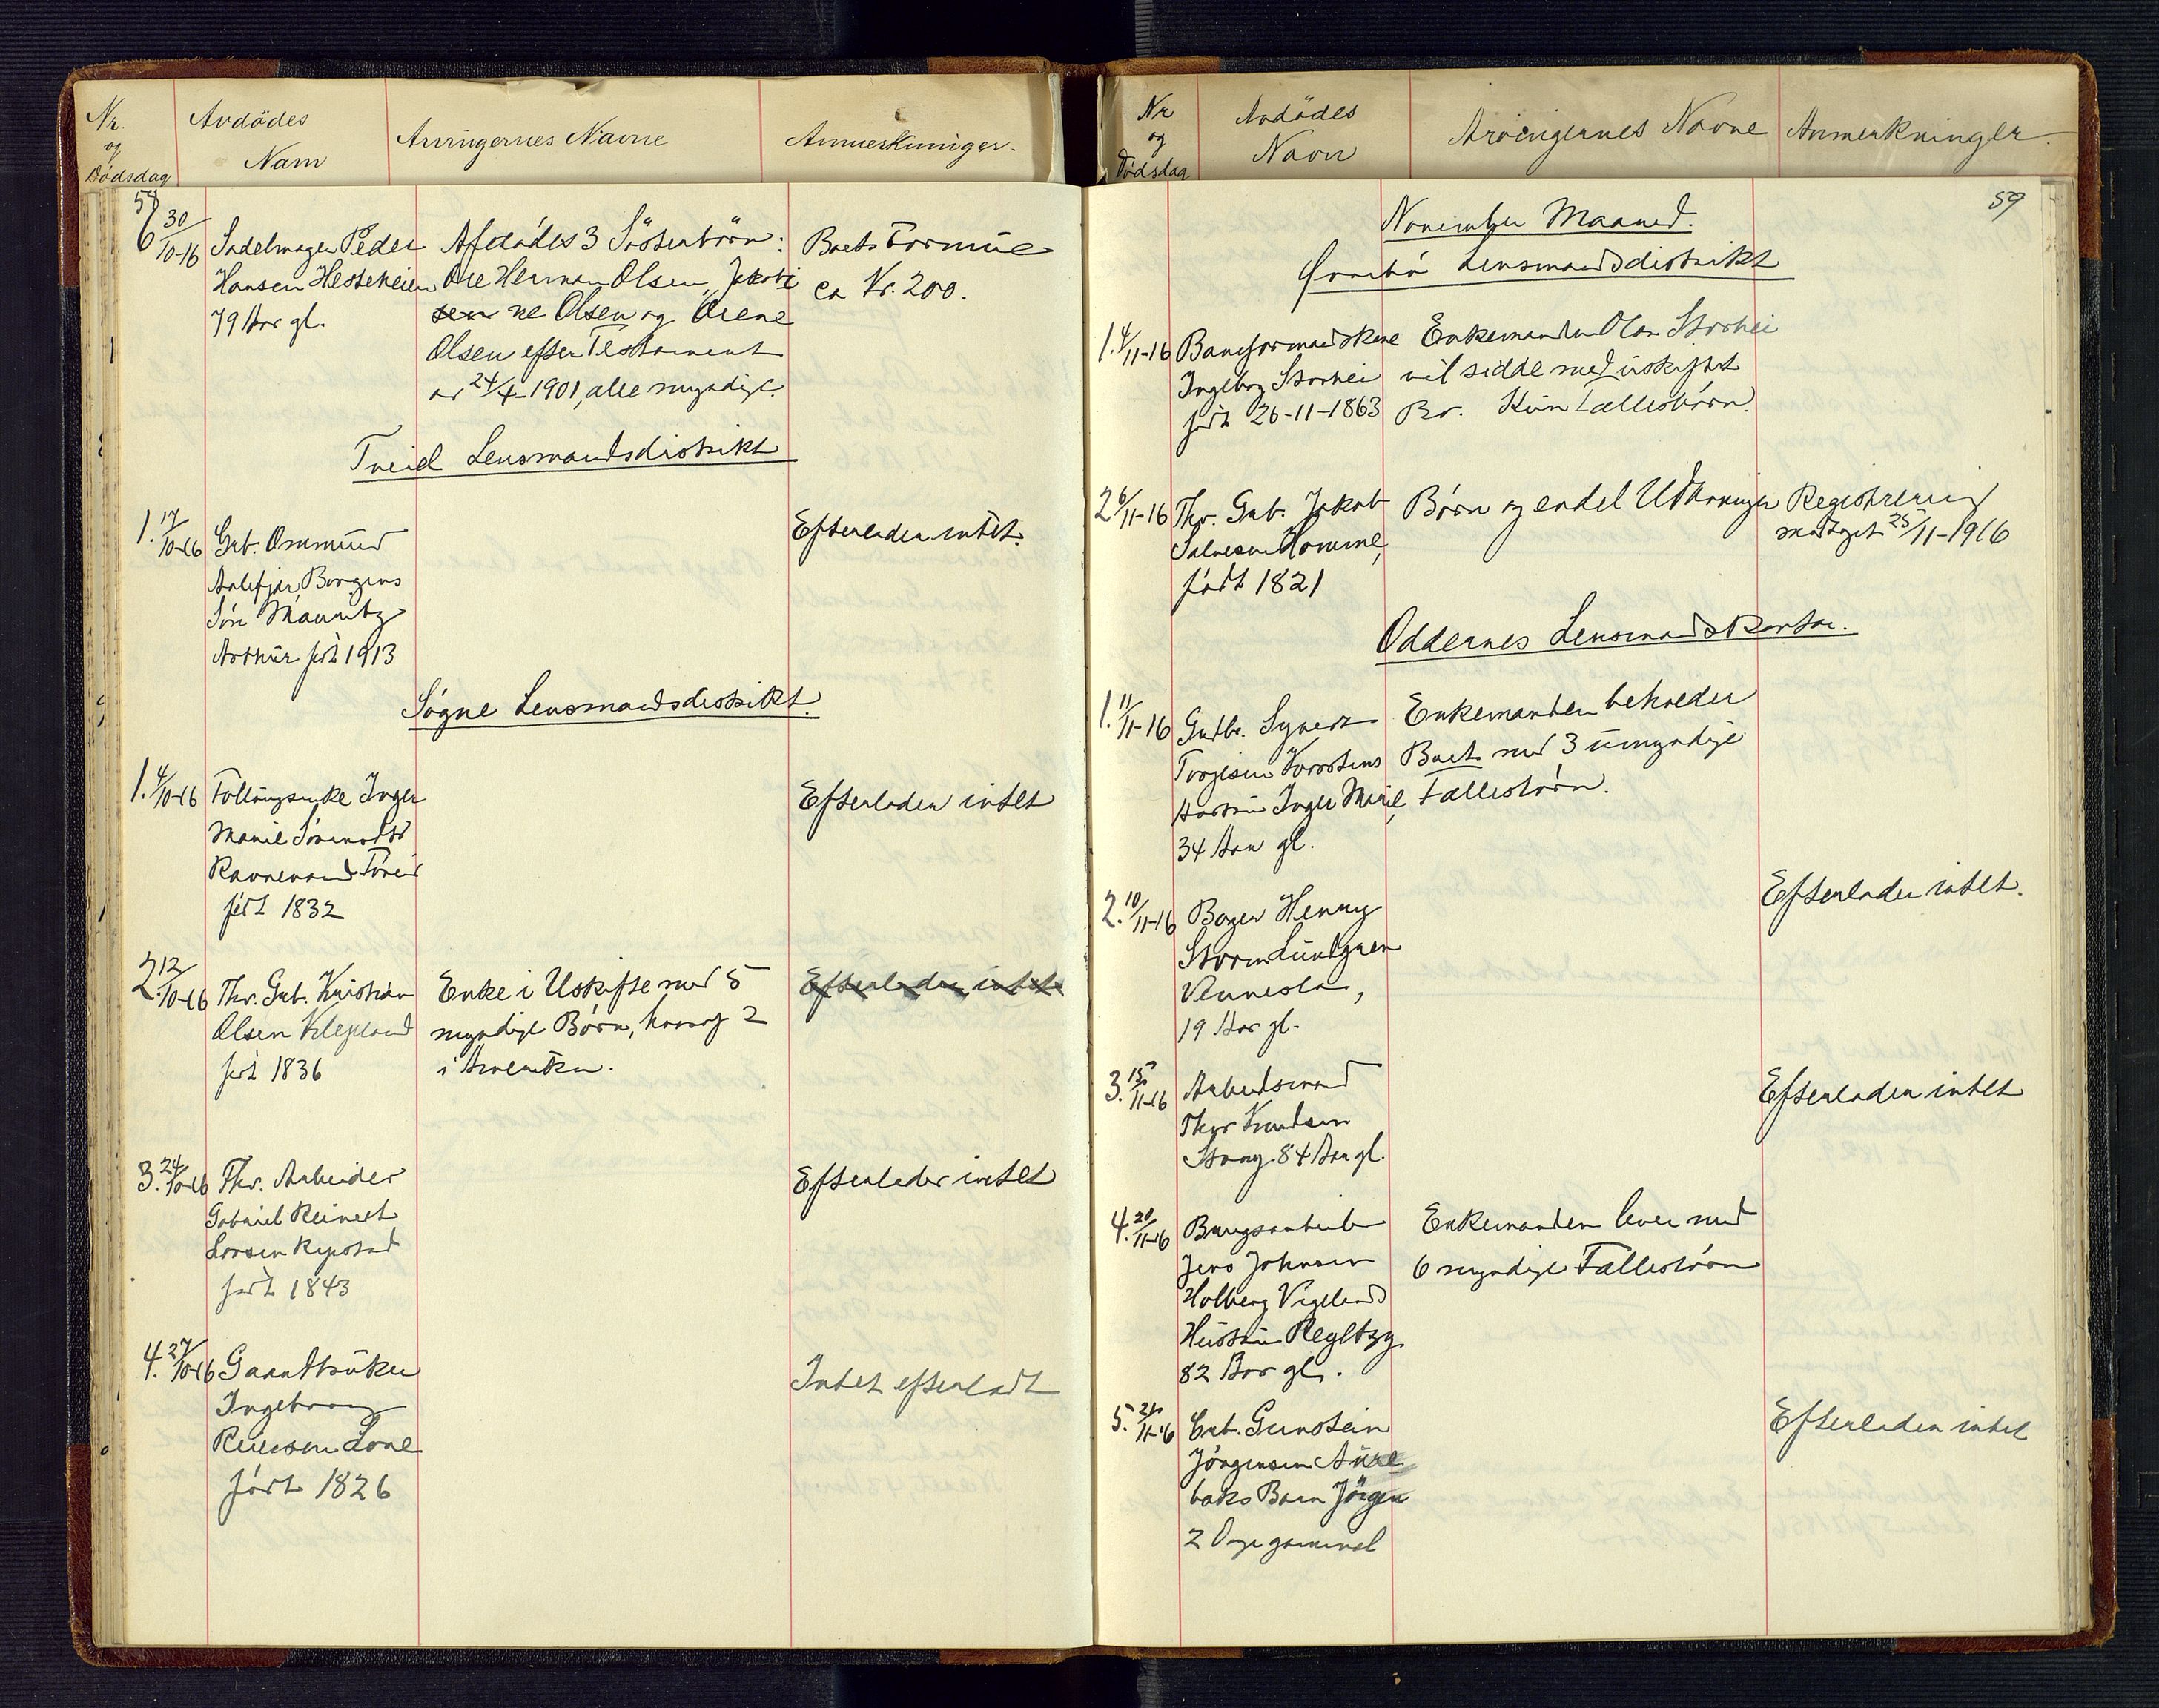 Nr.
og
Dödsdag
Avdödes
Navn
Arvingernes Navne
Anmerkninger.
58
6 30/10-16 Sadelmager Peder
Hansen Hesteheien
79 Aar gl.
Afdödes 3 Söstenbörn:
Ole Herman Olsen, Jakobi
ne Olsen og Olene
Olsen efter Testament
av 24/4-1901, alle myndige.
Boets Formue
ca Kr. 200.
Tveid Lensmandsdistrikt
1. 17/10-16 Grb. Ommund
Aalefjær, Borgens
Sön Mauritz
Arthur föt 1913
Efterlader intet.
Søgne Lensmandsdistrikt.
1. 4/10-16 Følingsenke Inger
Marie
født 1832
Efterlader intet
2. 12/10-16 Fhv. Grb. Kristian
Olsen Klepland
født 1836
Enke i Uskifte med 5
myndige Børn, hvorav 2
i Amerika.
Efterlader intet
3. 24/10-16 Fhv. Arbeider
Gabriel Reinert
Larsen Repstad
født 1843
Efterlader intet
4. 27/10-16 Gaardbruker
Ingebret
Reiersen Lone
født 1826
Intet efterladt
Nr
og
Dödsdag
Avdödes
Navn
Arvingernes Navne
Anmerkninger.
59
November Maaned.
Lensmandsdistrikt
1. 4/11-16 Baneformandskone
Ingeborg Storhei
født 26-11-1863
Enkemanden Olav Storhei
vil sidde med uskiftet
Bo. Kun Fællesbörn.
2 6/11-16 Fhv. Grb. Jakob
Salvesen Homme,
født 1821
Børn og endel Utkaninger
Registrering
modtaget 25/11-1916
Oddernes Lensmandskontor.
1. 11/11-16 Grdbr. Syvert
Torgesen
Hustru Inger Marie,
34 Aar gl.
Enkemanden behoeder
Boet med 3 umyndige
Fællesbörn.
2. 10/11-16 Bager Henry
Storm Lundgren
Vennesla,
19 Aar gl.
Efterlader intet.
3. 15/11-16 Arbeidsmand
Knudsen
Stray 84 Aar gl.
Efterlader intet
4. 20/11-16 Brugsarbeider
Jens Johnsen
Holberg Vigelands
Hustru
82 Aar gl.
Enkemanden lever med
6 myndige Fællesbörn
5. 21/11-16 Grb. Gunstein
Jörgensen Aure
baks Barn Jörgen
2 Dage gammel
Efterlader intet